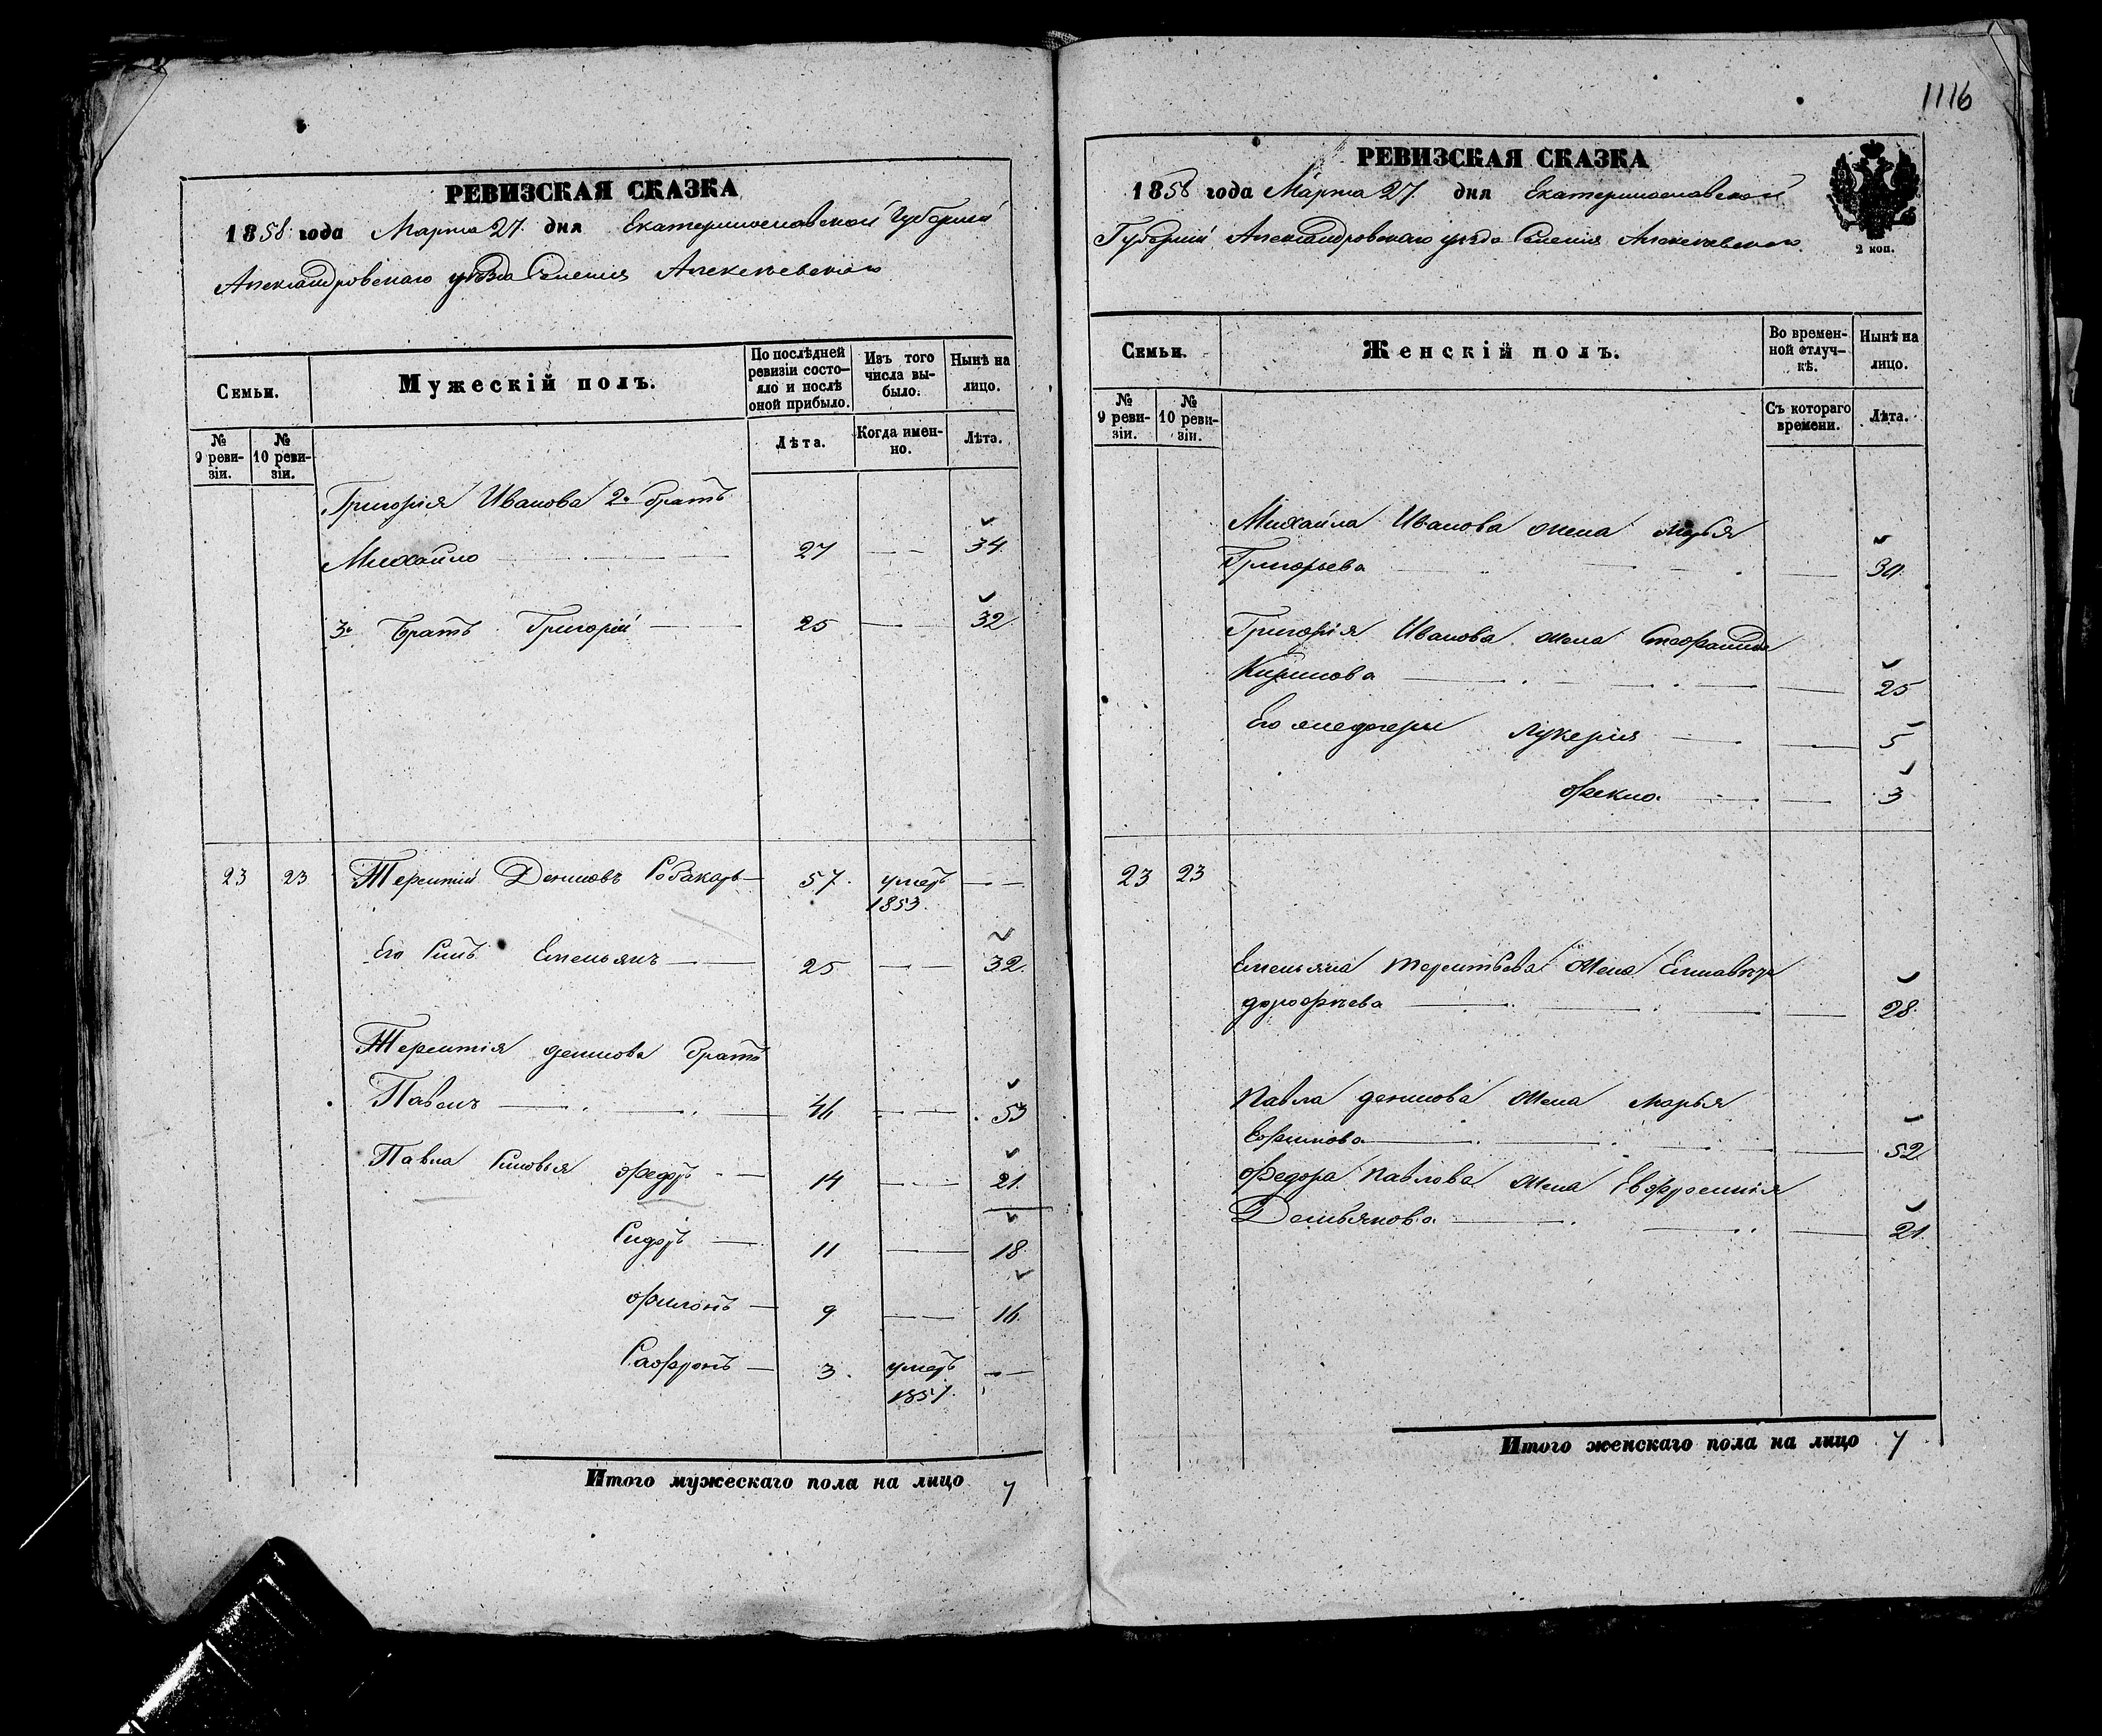 1116
РЕВИЗСКАЯ СКАЗКА
1858 года Марта 27 дня Екатеринославской Губерніи
Александровскаго уѣзда Селенія Алексѣевскаго
Семьи.
Мужескій полъ.
По послѣдней ревизіи состояло и послѣ оной прибыло.
Изъ того числа выбыло.
Нынѣ на лицо.
№ 9 ревизіи.
№ 10 ревизіи.
Лѣта.
Когда именно.
Лѣта.
Григорія Иванова 2й братъ
Михайло 27 34
3й братъ Григорій 25 32
23 23 Терентій Денисовъ 57 умеръ 1853
Его Сынъ Емельянъ 25 32
Терентія Денисова братъ
Павелъ 46 53
Павла Сыновья Федоръ 14 21
Сидоръ 11 18
Филонъ 9 16
Сафронъ 3 умеръ 1857
Итого мужескаго пола на лицо 7
РЕВИЗСКАЯ СКАЗКА
1858 года Марта 27 дня Екатеринославской
Губерніи Александровскаго уѣзда Селенія Алексѣевскаго
2 коп.
Семьи.
Женскій полъ.
Во временной отлучкѣ.
Нынѣ на лицо.
№ 9 ревизіи.
№ 10 ревизіи.
Съ котораго времени.
Лѣта.
Михайла Иванова жена Марья
Григорьева
Григорія Иванова жена
Кирилова 25
Его же дочери Лукерія 5
Фекла 3
23 23
Емельяна Терентьева жена
Дорофѣева 28
Павла Денисова жена Марья
Ефимова 52
Федора Павлова жена Евфросинія
Демьянова 21
Итого женскаго пола на лицо 7